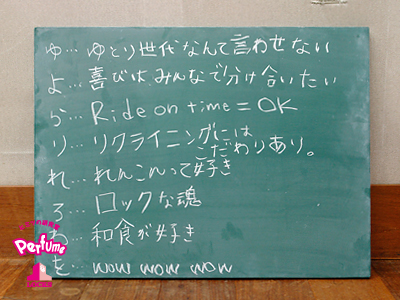 ゆ…ゆとり世代なんて言わせない
よ…喜びはみんなで分け合いたい
ら…Ride on time=OK
り…リクライニングには
こだわりあり。
れ…れんこんって好き
ろ…ロックな魂
わ…和食が好き
を…wow wow wow
Perfume